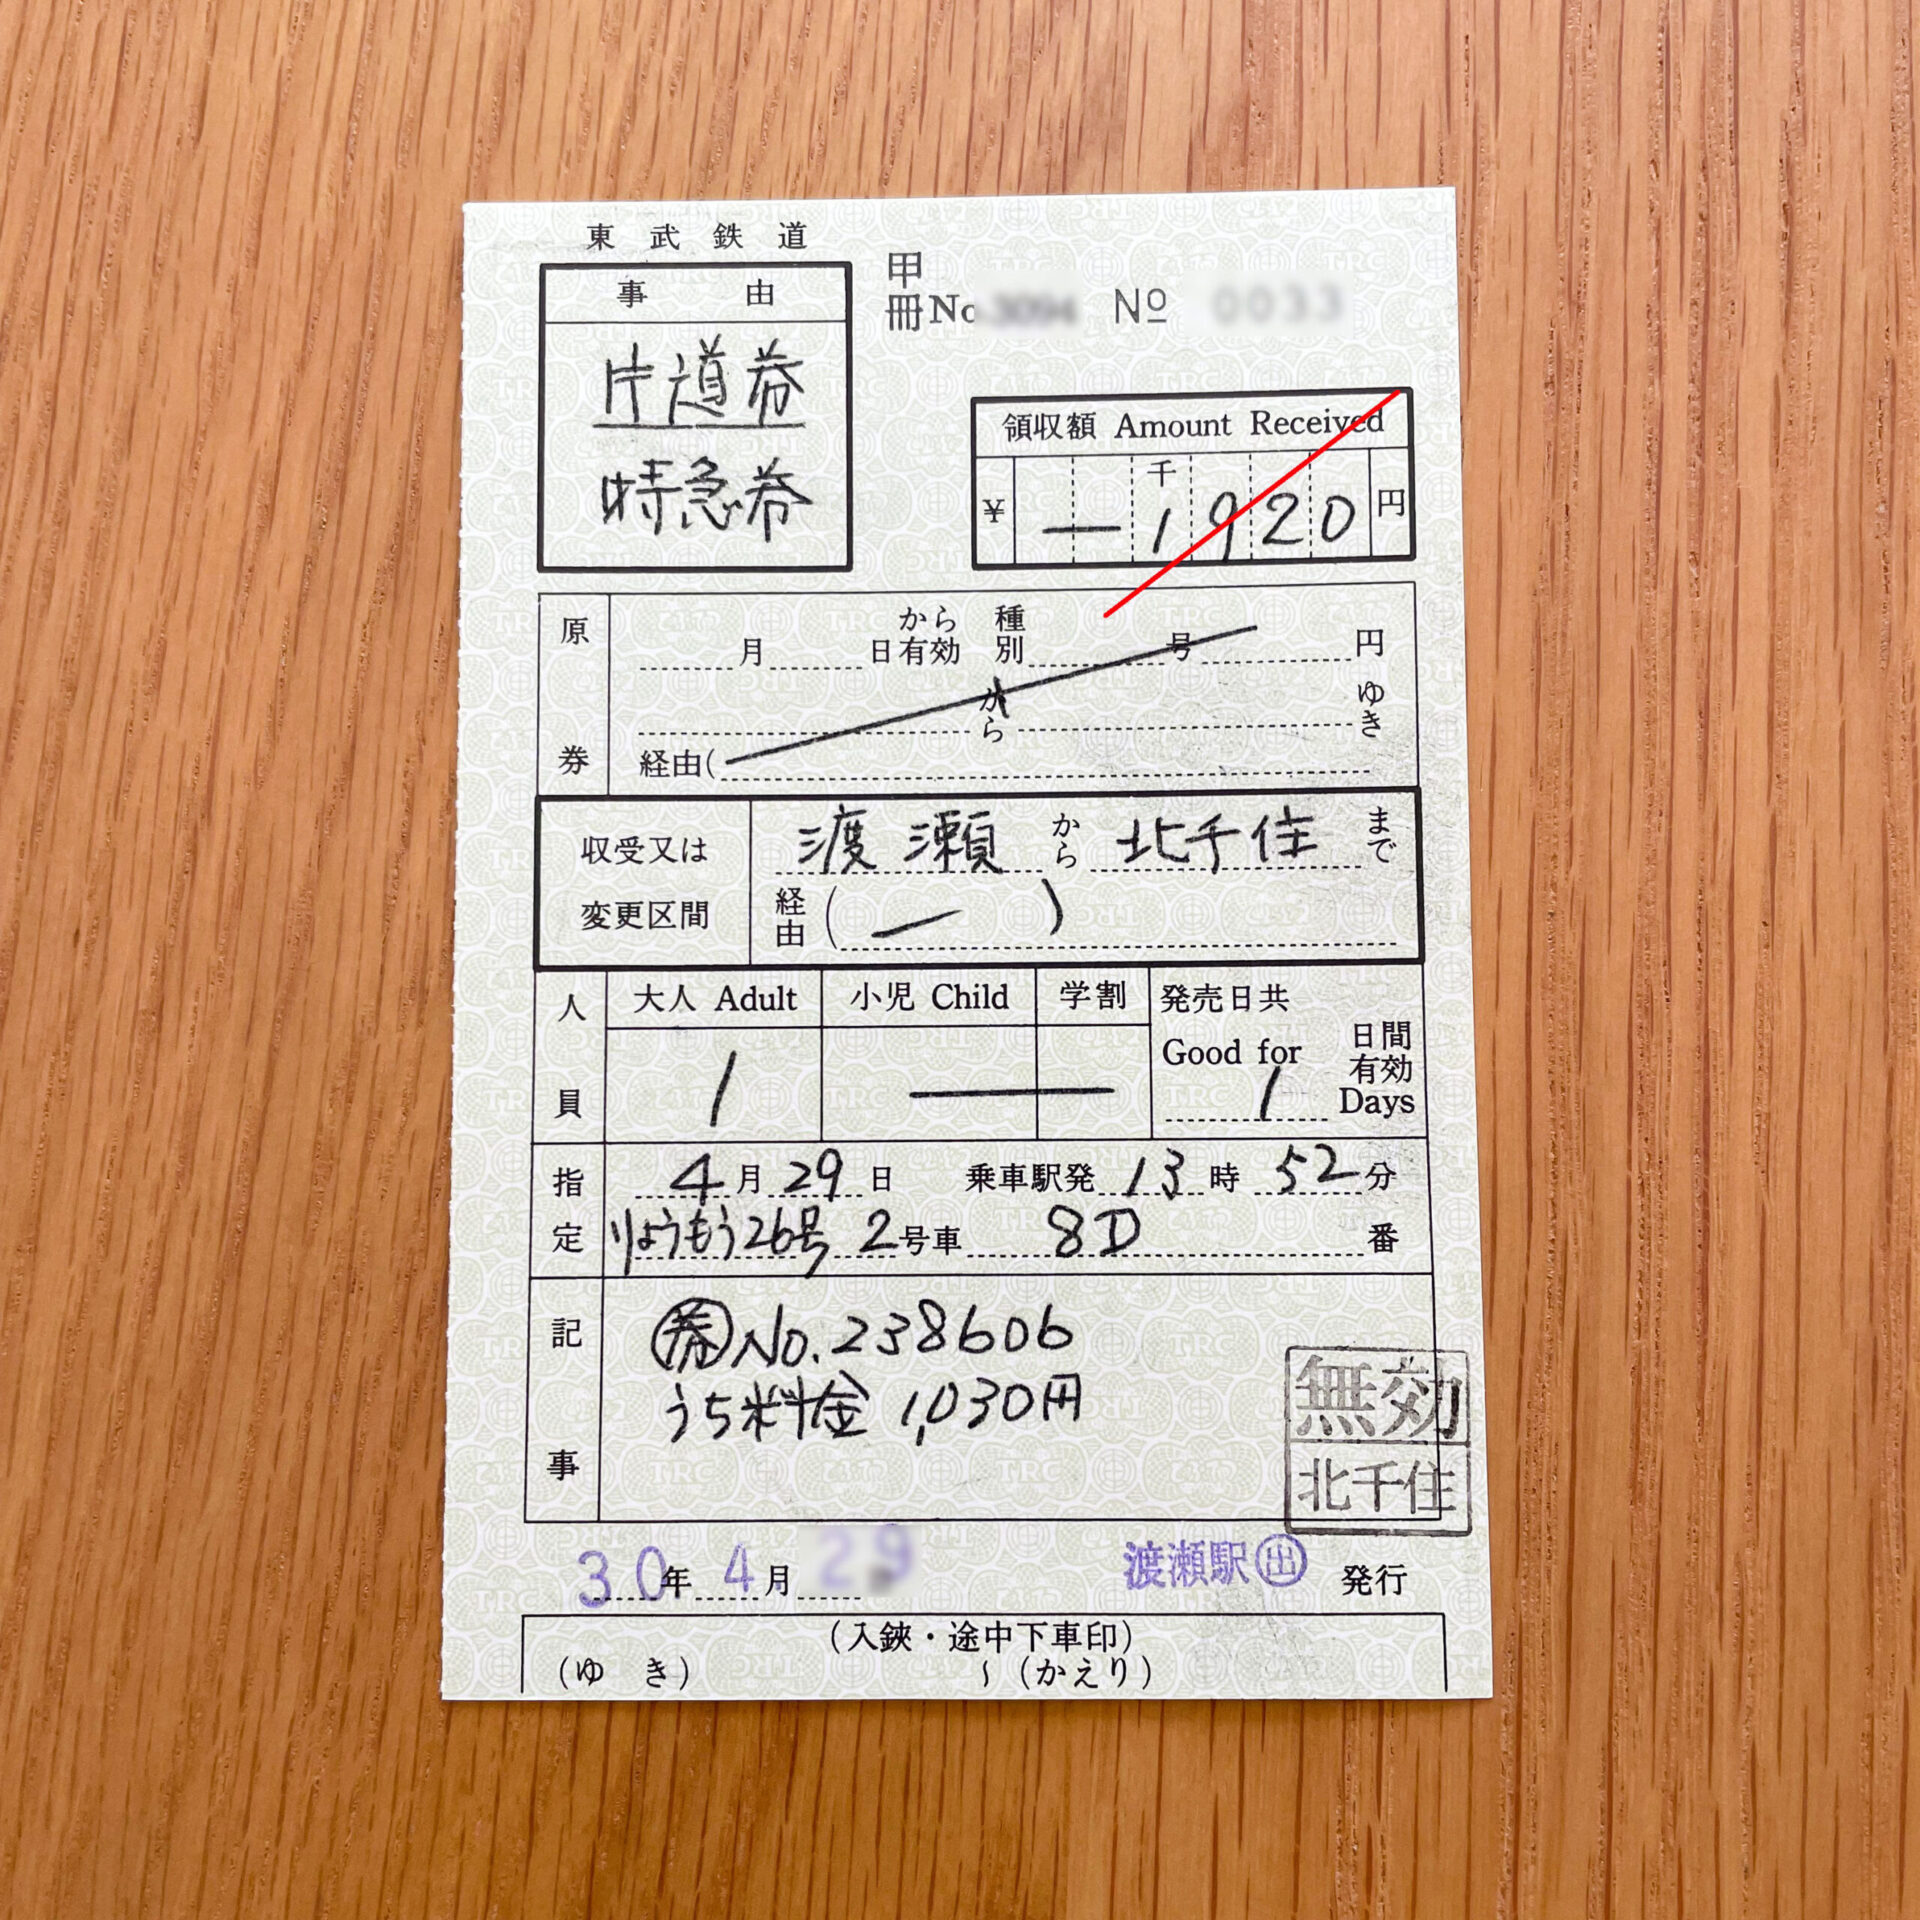 東武鉄道
事由
片道券
特急券
甲
冊No No
領収額 Amount Received
千
¥ 1920 円
原券
月 日から有効 種別 号 円
から ゆき
経由(
収受又は変更区間
渡瀬から北千住まで
経由( ー )
人員
大人 Adult 小児 Child 学割
1
発売日共
Good for 1 日間有効 Days
指定
4月29日 乗車駅発 13時52分
りょうもう26号 2号車 8D 番
記事
券No.238606
うち料金 1,030円
無効
北千住
30年4月29
渡瀬駅出 発行
(入鋏・途中下車印)
(ゆき) (かえり)